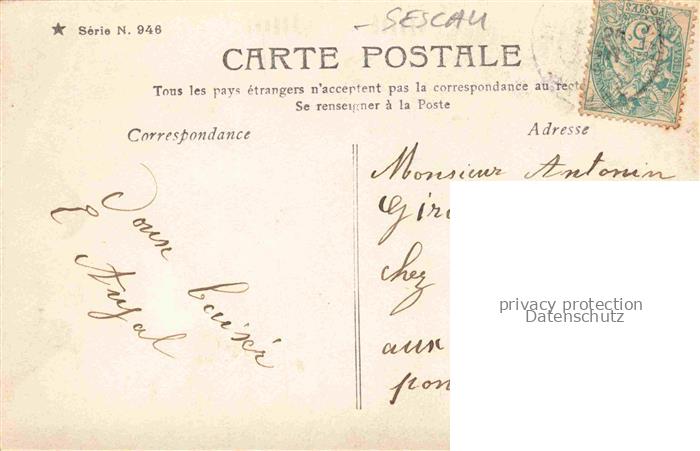 SESCAU
★ Série N. 946
CARTE POSTALE
Tous les pays étrangers n'acceptent pas la correspondance au recto
Se renseigner à la Poste
Correspondance
Adresse
POSTES
5
Monsieur Antonin
Gir
chez
aux
pon
Doux baisé
E
privacy protection
Datenschutz